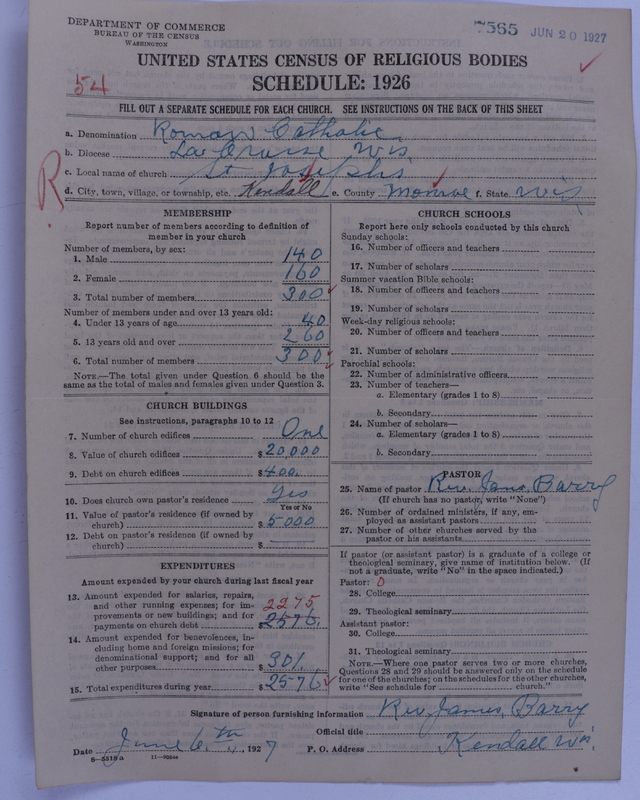 DEPARTMENT OF COMMERCE
BUREAU OF THE CENSUS
WASHINGTON
7565 JUN 20 1927
UNITED STATES CENSUS OF RELIGIOUS BODIES
54
SCHEDULE: 1926
FILL OUT A SEPARATE SCHEDULE FOR EACH CHURCH. SEE INSTRUCTIONS ON THE BACK OF THIS SHEET
a. Denomination Roman Catholic
b. Diocese La Crosse Wis.
c. Local name of church St Josephs
R.
d. City, town, village, or township, etc. Kendall e. County Monroe f. State Wis
MEMBERSHIP
Report number of members according to definition of
member in your church
Number of members, by sex:
1. Male 140
2. Female 160
3. Total number of members 300
Number of members under and over 13 years old:
4. Under 13 years of age 40
5. 13 years old and over 260
6. Total number of members 300
NOTE.—The total given under Question 6 should be the
same as the total of males and females given under Question 3.
CHURCH BUILDINGS
See instructions, paragraphs 10 to 12
7. Number of church edifices One
8. Value of church edifices $20,000
9. Debt on church edifices $400.
10. Does church own pastor's residence Yes
Yes or No
11. Value of pastor's residence (if owned by
church) $5000
12. Debt on pastor's residence (if owned by
church) $
EXPENDITURES
Amount expended by your church during last fiscal year
13. Amount expended for salaries, repairs,
and other running expenses; for im- 2275
provements or new buildings; and for
payments on church debt $2576
14. Amount expended for benevolences, in-
cluding home and foreign missions; for
denominational support; and for all
other purposes $301.
15. Total expenditures during year $2576
CHURCH SCHOOLS
Report here only schools conducted by this church
Sunday schools:
16. Number of officers and teachers
17. Number of scholars
Summer vacation Bible schools:
18. Number of officers and teachers
19. Number of scholars
Week-day religious schools:
20. Number of officers and teachers
21. Number of scholars
Parochial schools:
22. Number of administrative officers
23. Number of teachers—
a. Elementary (grades 1 to 8)
b. Secondary
24. Number of scholars—
a. Elementary (grades 1 to 8)
b. Secondary
PASTOR
25. Name of pastor Rev. James Barry
(If church has no pastor, write "None")
26. Number of ordained ministers, if any, em-
ployed as assistant pastors
27. Number of other churches served by the
pastor or his assistants
If pastor (or assistant pastor) is a graduate of a college or
theological seminary, give name of institution below. (If
not a graduate, write "No" in the space indicated.)
Pastor: 0
28. College
29. Theological seminary
Assistant pastor:
30. College
31. Theological seminary
NOTE.—Where one pastor serves two or more churches,
Questions 28 and 29 should be answered only on the schedule
for one of the churches; on the schedules for the other churches,
write "See schedule for church."
Signature of person furnishing information Rev. James, Barry
Official title
Date June 6th, 1927 P. O. Address Kendall Wis.
8—5518a